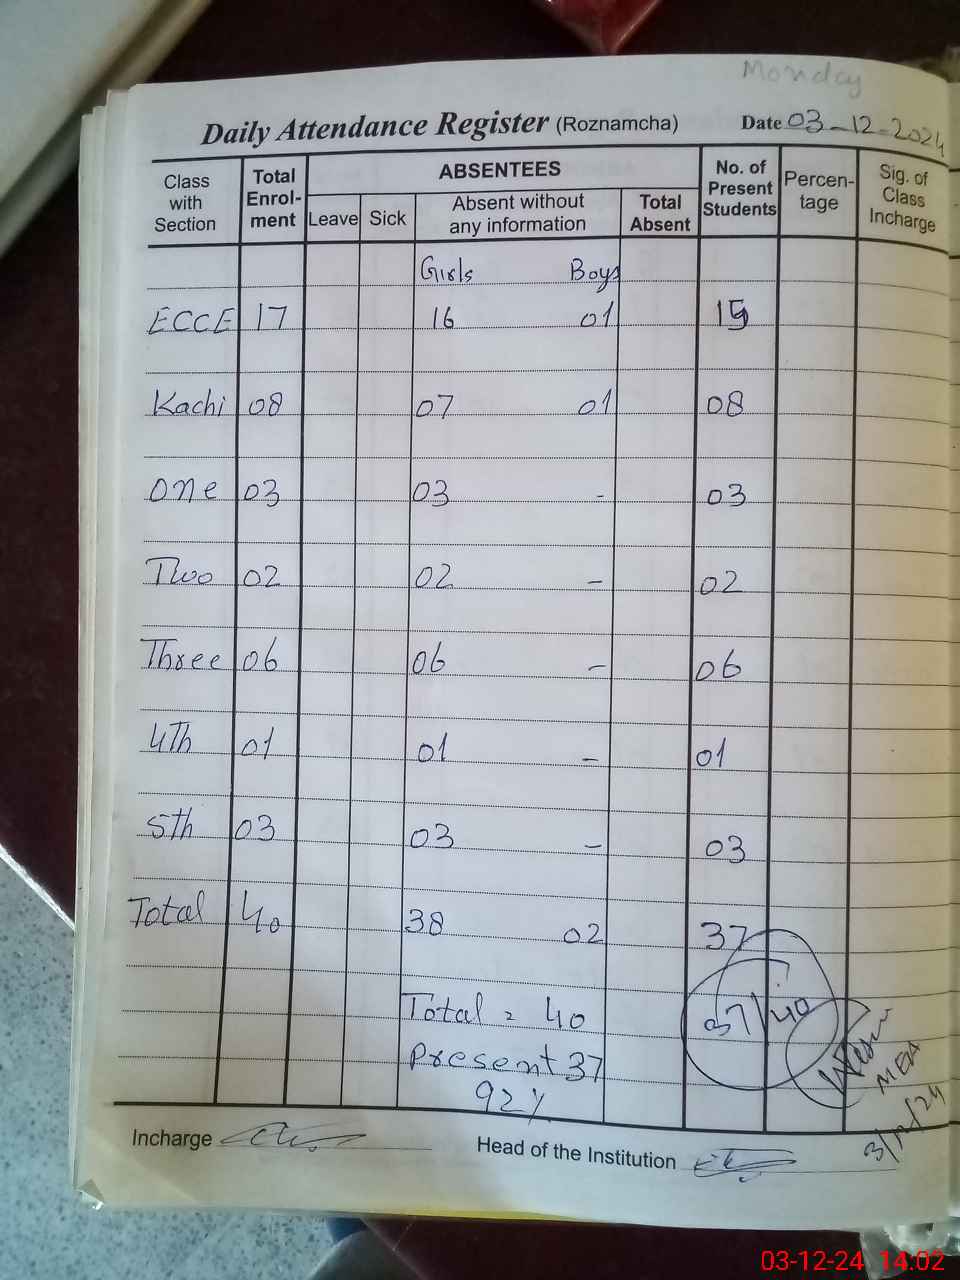 Monday
Daily Attendance Register (Roznamcha) Date 03-12-2024
Class with Section Total Enrol-ment ABSENTEES No. of Present Students Percen-tage Sig. of Class Incharge
Leave Sick Absent without any information Total Absent
Girls Boys
ECCE 17 16 01 15
Kachi 08 07 01 08
One 03 03 - 03
Two 02 02 - 02
Three 06 06 - 06
4Th 01 01 - 01
5th 03 03 - 03
Total 40 38 02 37
Total = 40 37/40
Present 37
92%
MEA
3/12/24
Incharge Head of the Institution
03-12-24 14:02